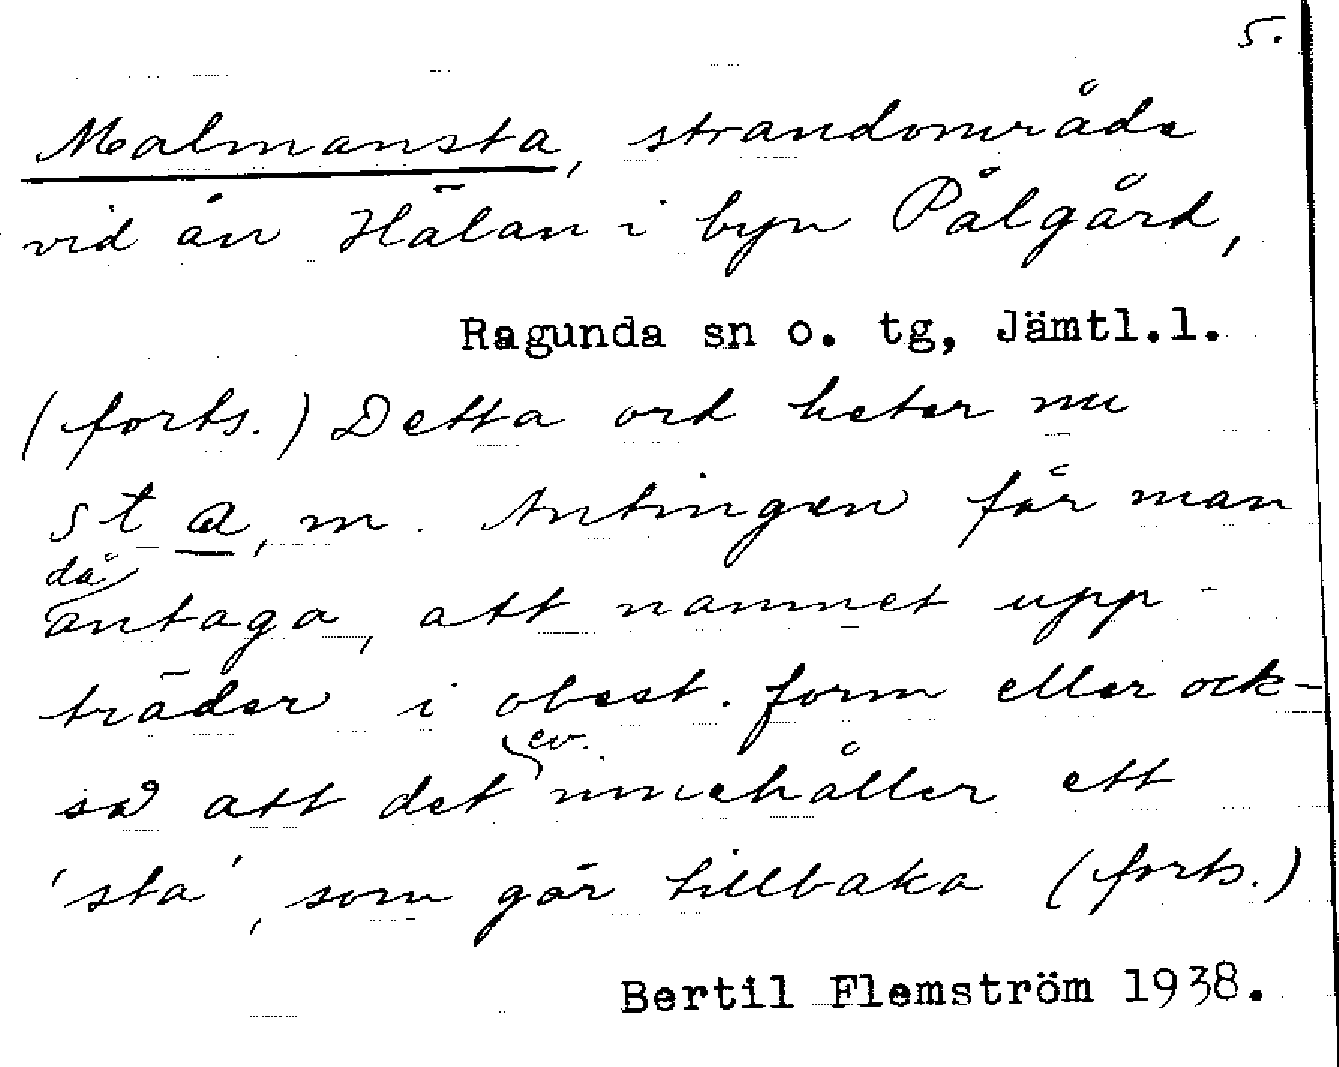 5.
Malmansta, strandområde
vid ån Hälan i byn Pålgård,
Ragunda sn o. tg, Jämtl.l.
(forts.) Detta ord heter nu
sta, m. Antingen får man
då
antaga, att namnet upp-
träder i obest. form eller ock-
ev.
så att det innehåller ett
'sta', som går tillbaka (forts.)
Bertil Flemström 1938.